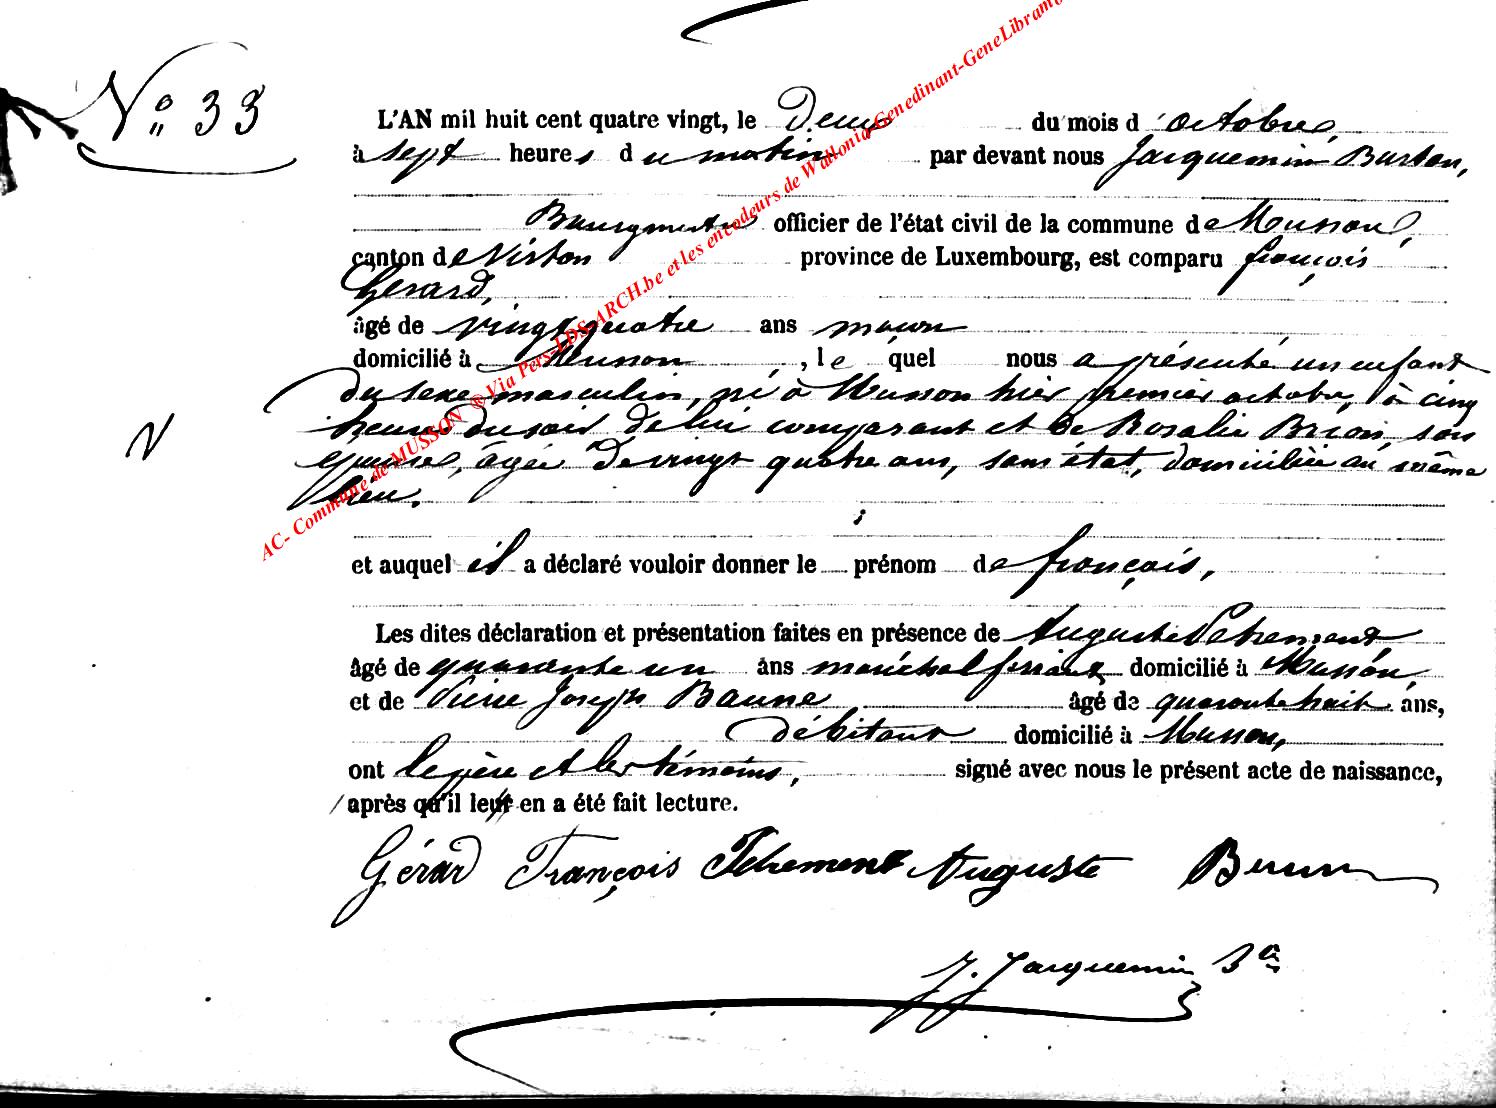 N° 33
L'AN mil huit cent quatre vingt, le Deux du mois d'octobre,
à sept heures du matin par devant nous Jacquemin Burton,
Bourgmestre officier de l'état civil de la commune de Musson,
canton de Virton province de Luxembourg, est comparu françois
Gérard,
âgé de vingt quatre ans maçon
domicilié à Musson, lequel nous a présenté un enfant
du sexe masculin, né à Musson hier premier octobre, à cinq
heures du soir de lui comparant et de Rosalie Brion, son
épouse, âgée de vingt quatre ans, sans état, domiciliée au même
lieu.
et auquel il a déclaré vouloir donner le prénom de françois,
Les dites déclaration et présentation faites en présence de Auguste Tchement
âgé de quarante un ans maréchal ferrant domicilié à Musson,
et de Pierre Joseph Baune âgé de quarante huit ans,
débitant domicilié à Musson,
ont le père et les témoins, signé avec nous le présent acte de naissance,
après qu'il leur en a été fait lecture.
Gérard François Tchement Auguste
J. Jacquemin
AC- Commune de MUSSON @ Via Pers-LDS-ARCH.be et les encodeurs de Wallonia-Genedinant-GeneLibramo